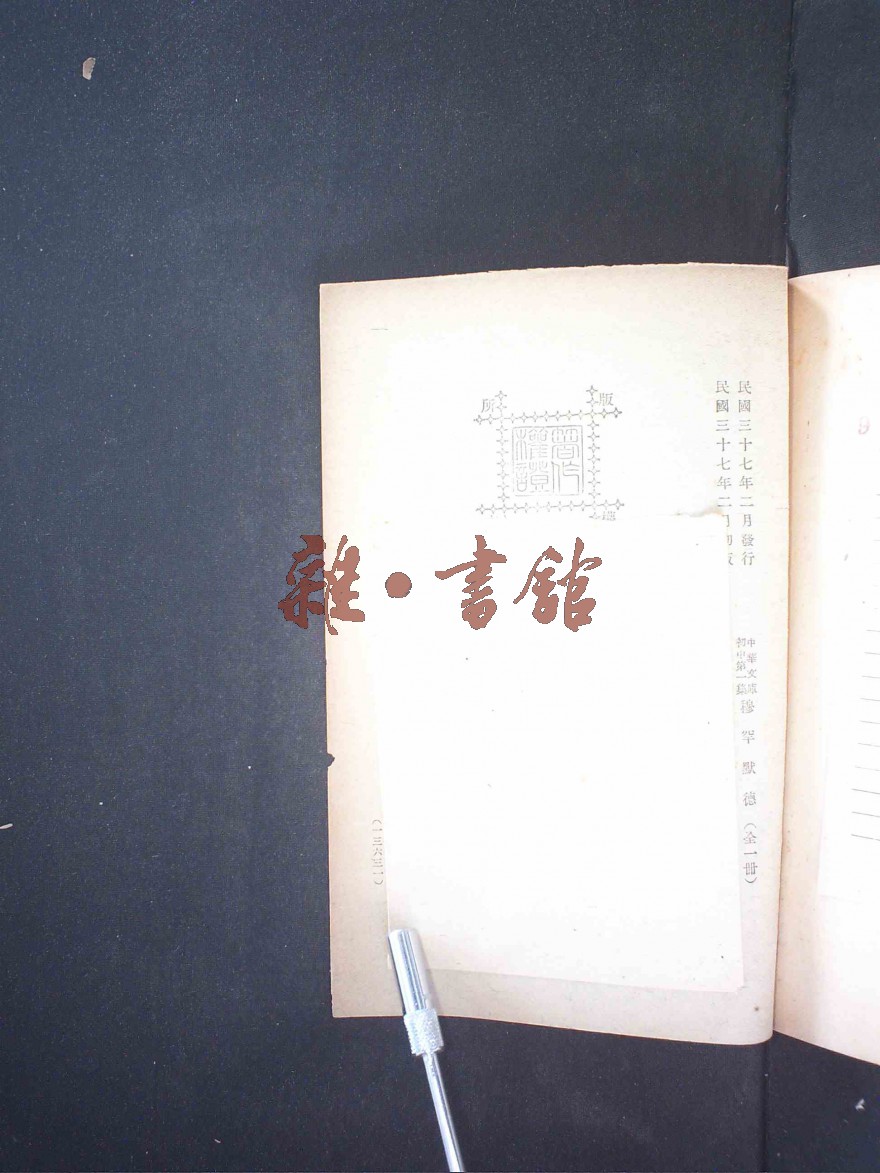 民國三十七年二月發行
民國三十七年二月初版
中華文庫
初中第一集
穆罕默德（全一冊）
版
所
權
著作
權讀
雜·書館
（一三六三一）
9